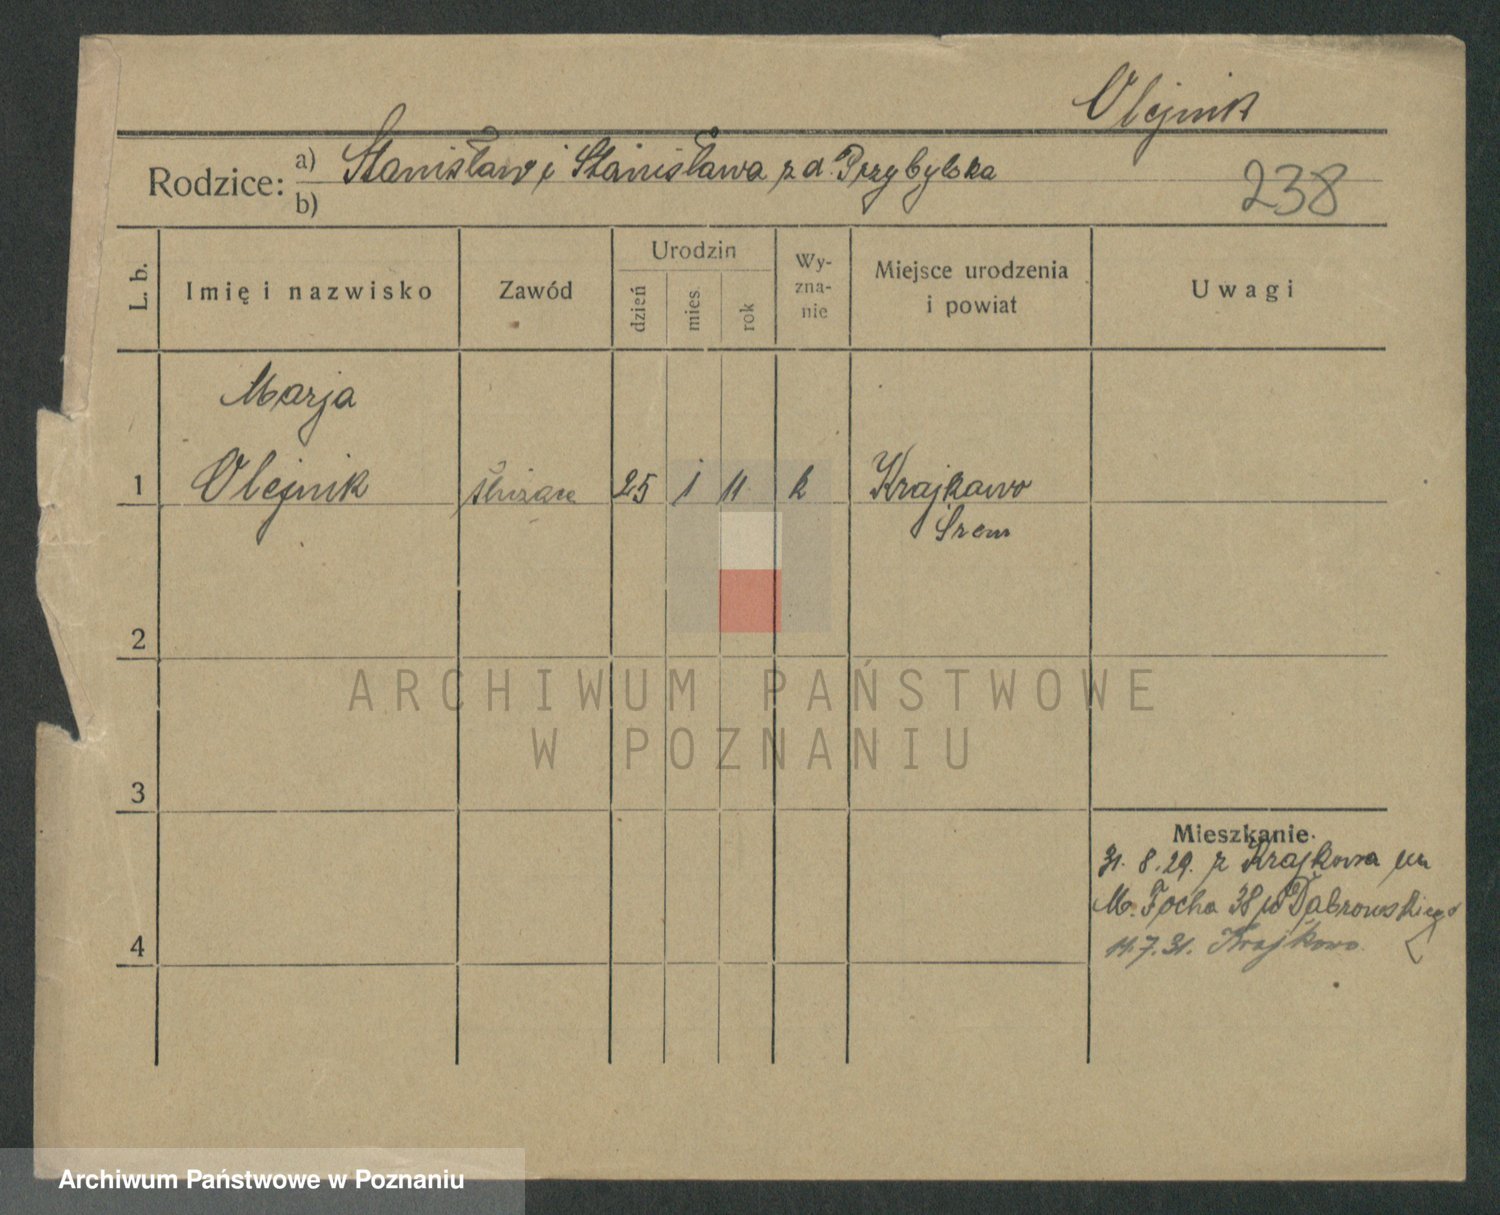 Olejnik
Rodzice: a) Stanisław i Stanisława z d. Przybylska
b)
238
L. b.
Imię i nazwisko
Zawód
Urodzin
dzień
mies.
rok
Wy-
zna-
nie
Miejsce urodzenia
i powiat
Uwagi
Marja
1 Olejnik służąca 25 1 11 k Krajkowo
Śrem
2
3
4
Mieszkanie
31. 8. 29. z Krajkowa
M. Focha 38 Dąbrowskiego
11.7.31. Krajkowo
ARCHIWUM PAŃSTWOWE
W POZNANIU
Archiwum Państwowe w Poznaniu